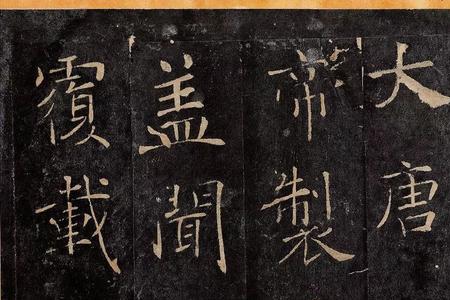 大唐
帝製
盖聞
覆載